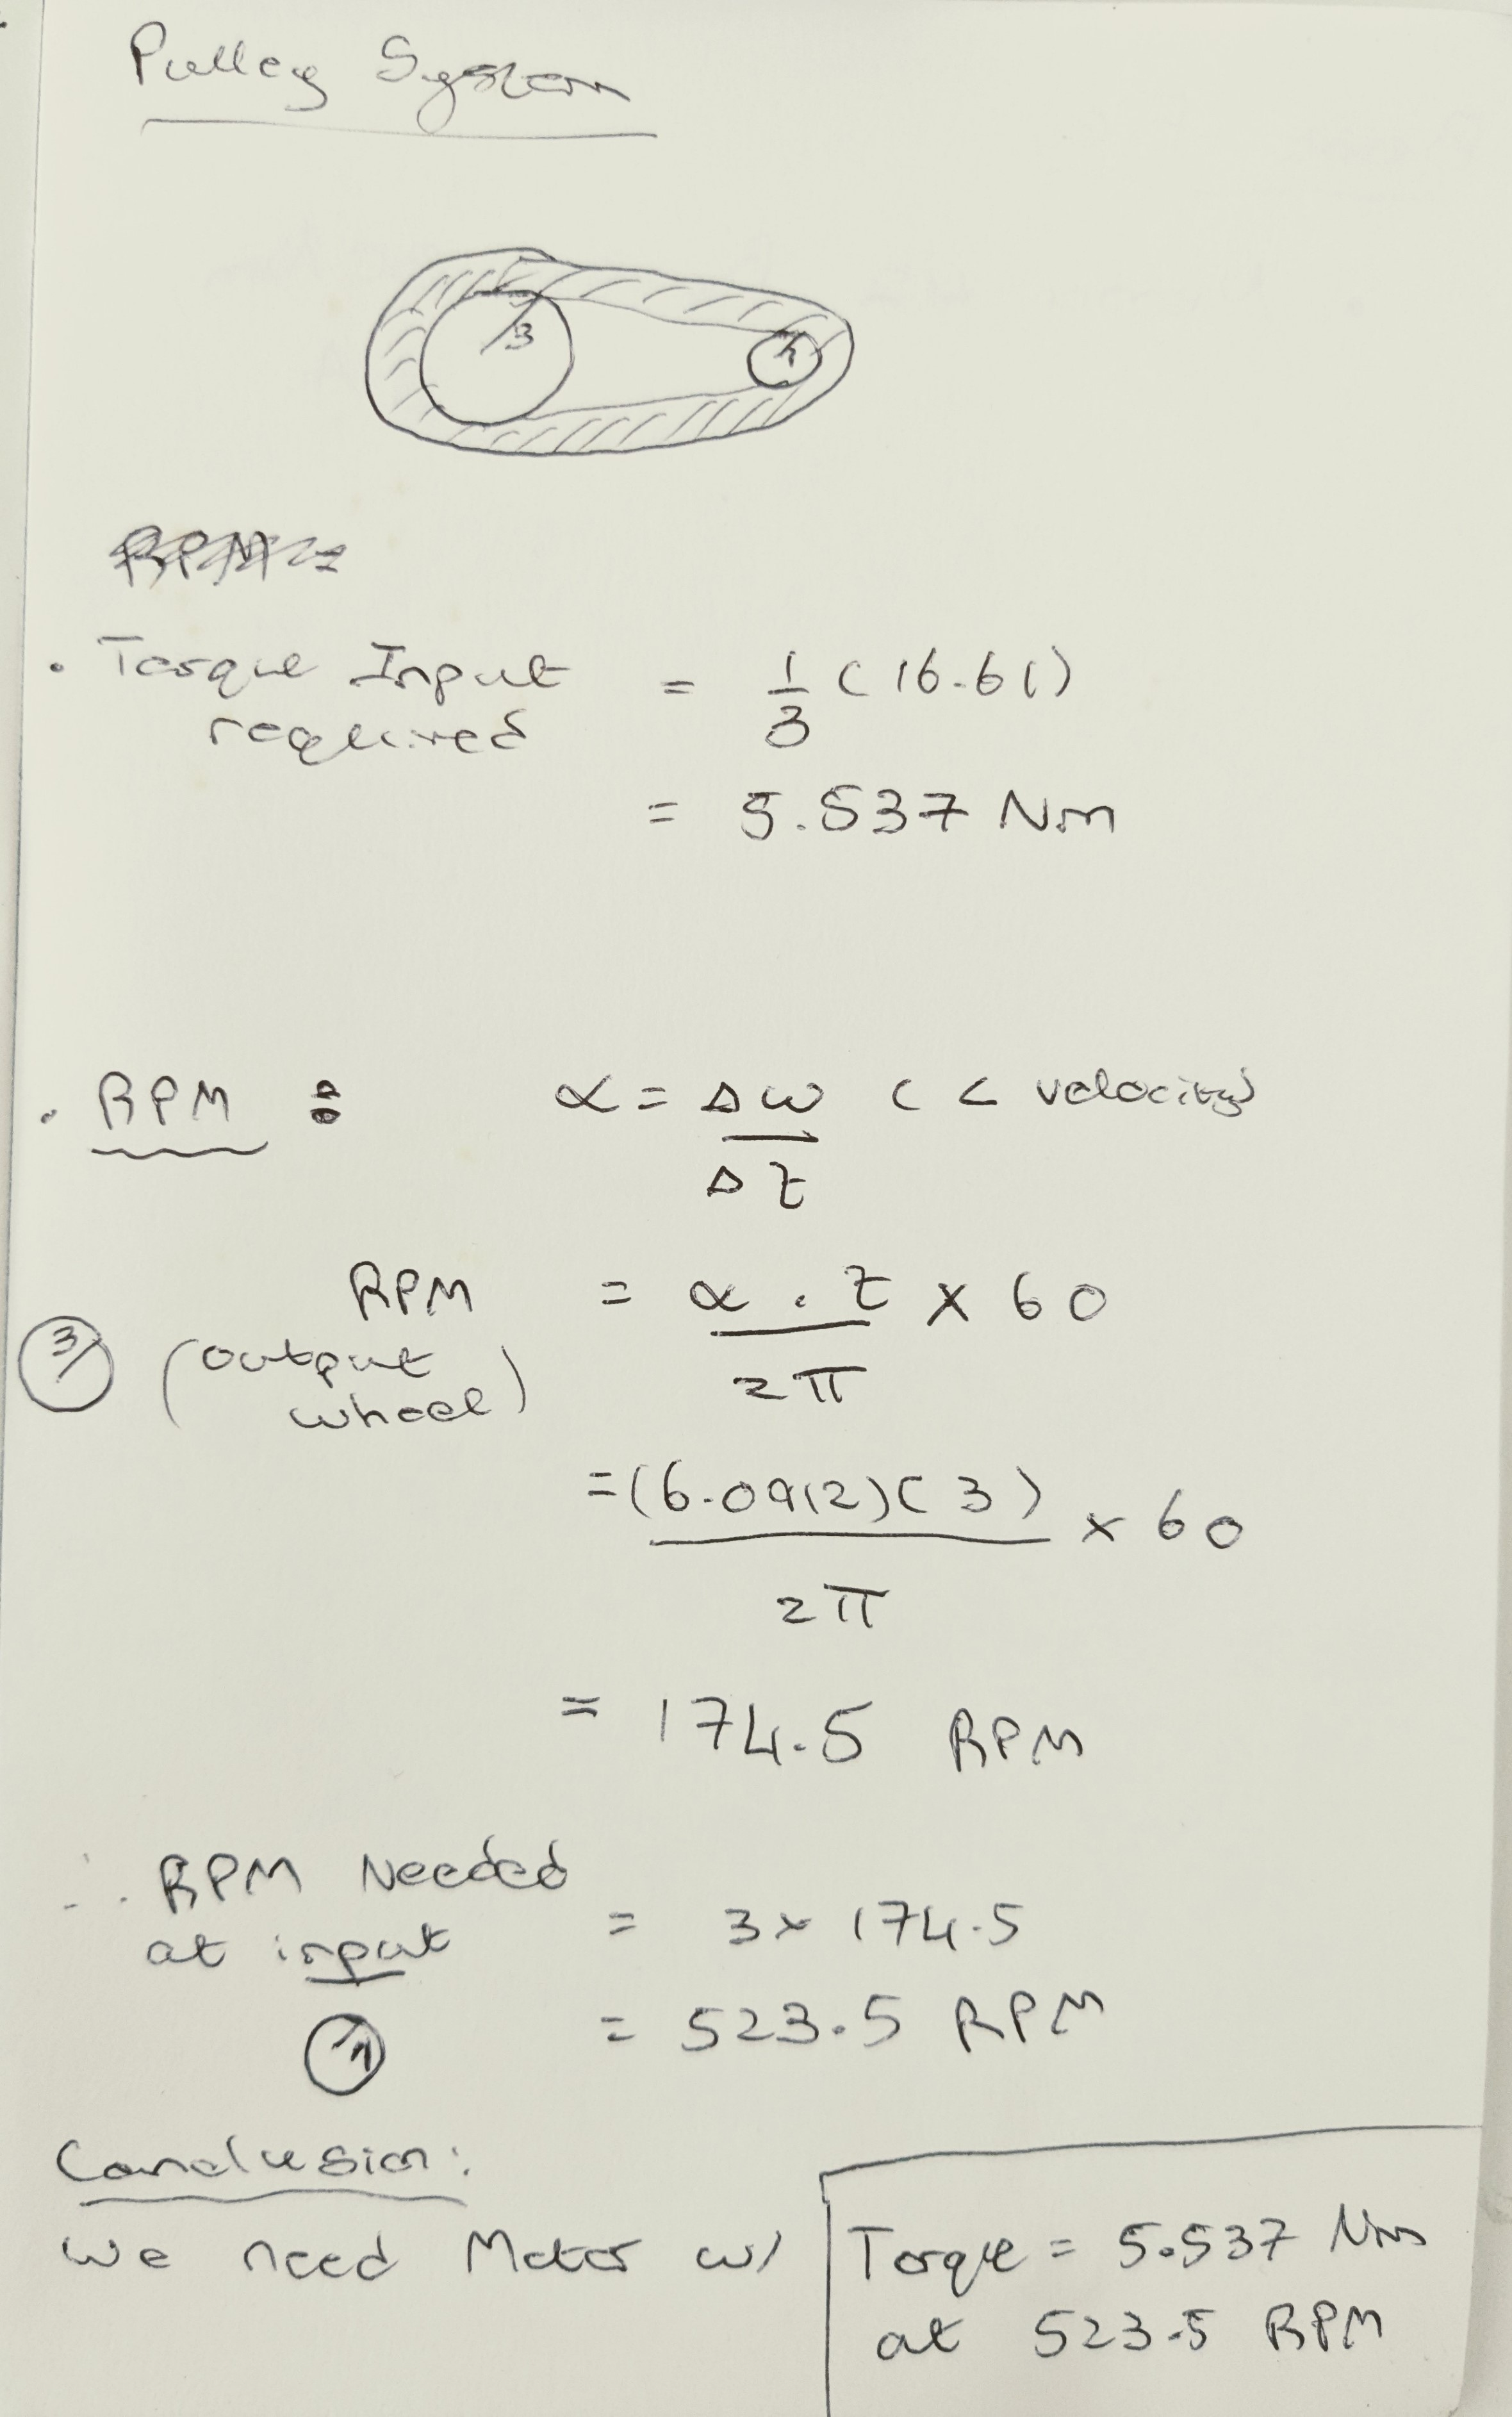 Pulley System
3
1
RPM =
· Torque Input = 1/3 (16.61)
required
= 5.537 Nm
· RPM : α = Δω (∠ velocity)
Δt
RPM = α . t × 60
3 (output 2π
wheel)
= (6.0912)(3) × 60
2π
= 174.5 RPM
∴ RPM Needed
at input = 3 × 174.5
1 = 523.5 RPM
Conclusion:
we need Motor w/ Torque = 5.537 Nm
at 523.5 RPM